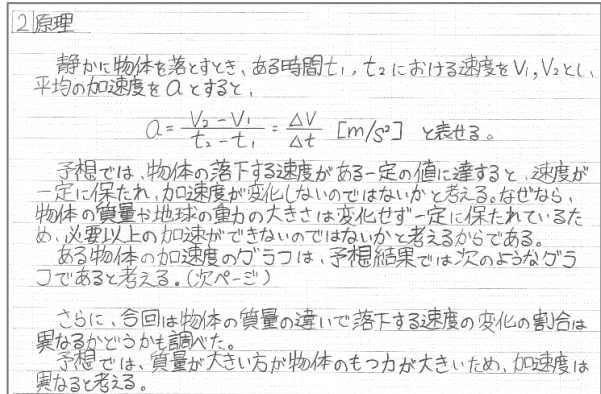 2 原理
静かに物体を落とすとき、ある時間t₁, t₂における速度をV₁, V₂とし、
平均の加速度をaとすると、
a = (V₂-V₁)/(t₂-t₁) = ΔV/Δt [m/s²] と表せる。
予想では、物体の落下する速度がある一定の値に達すると、速度が
一定に保たれ、加速度が変化しないのではないかと考える。なぜなら、
物体の質量や地球の重力の大きさは変化せず一定に保たれているた
め、必要以上の加速ができないのではないかと考えるからである。
ある物体の加速度のグラフは、予想結果では次のようなグラ
フであると考える。(次ページ)
さらに、今回は物体の質量の違いで落下する速度の変化の割合は
異なるかどうかも調べた。
予想では、質量が大きい方が物体のもつ力が大きいため、加速度は
異なると考える。